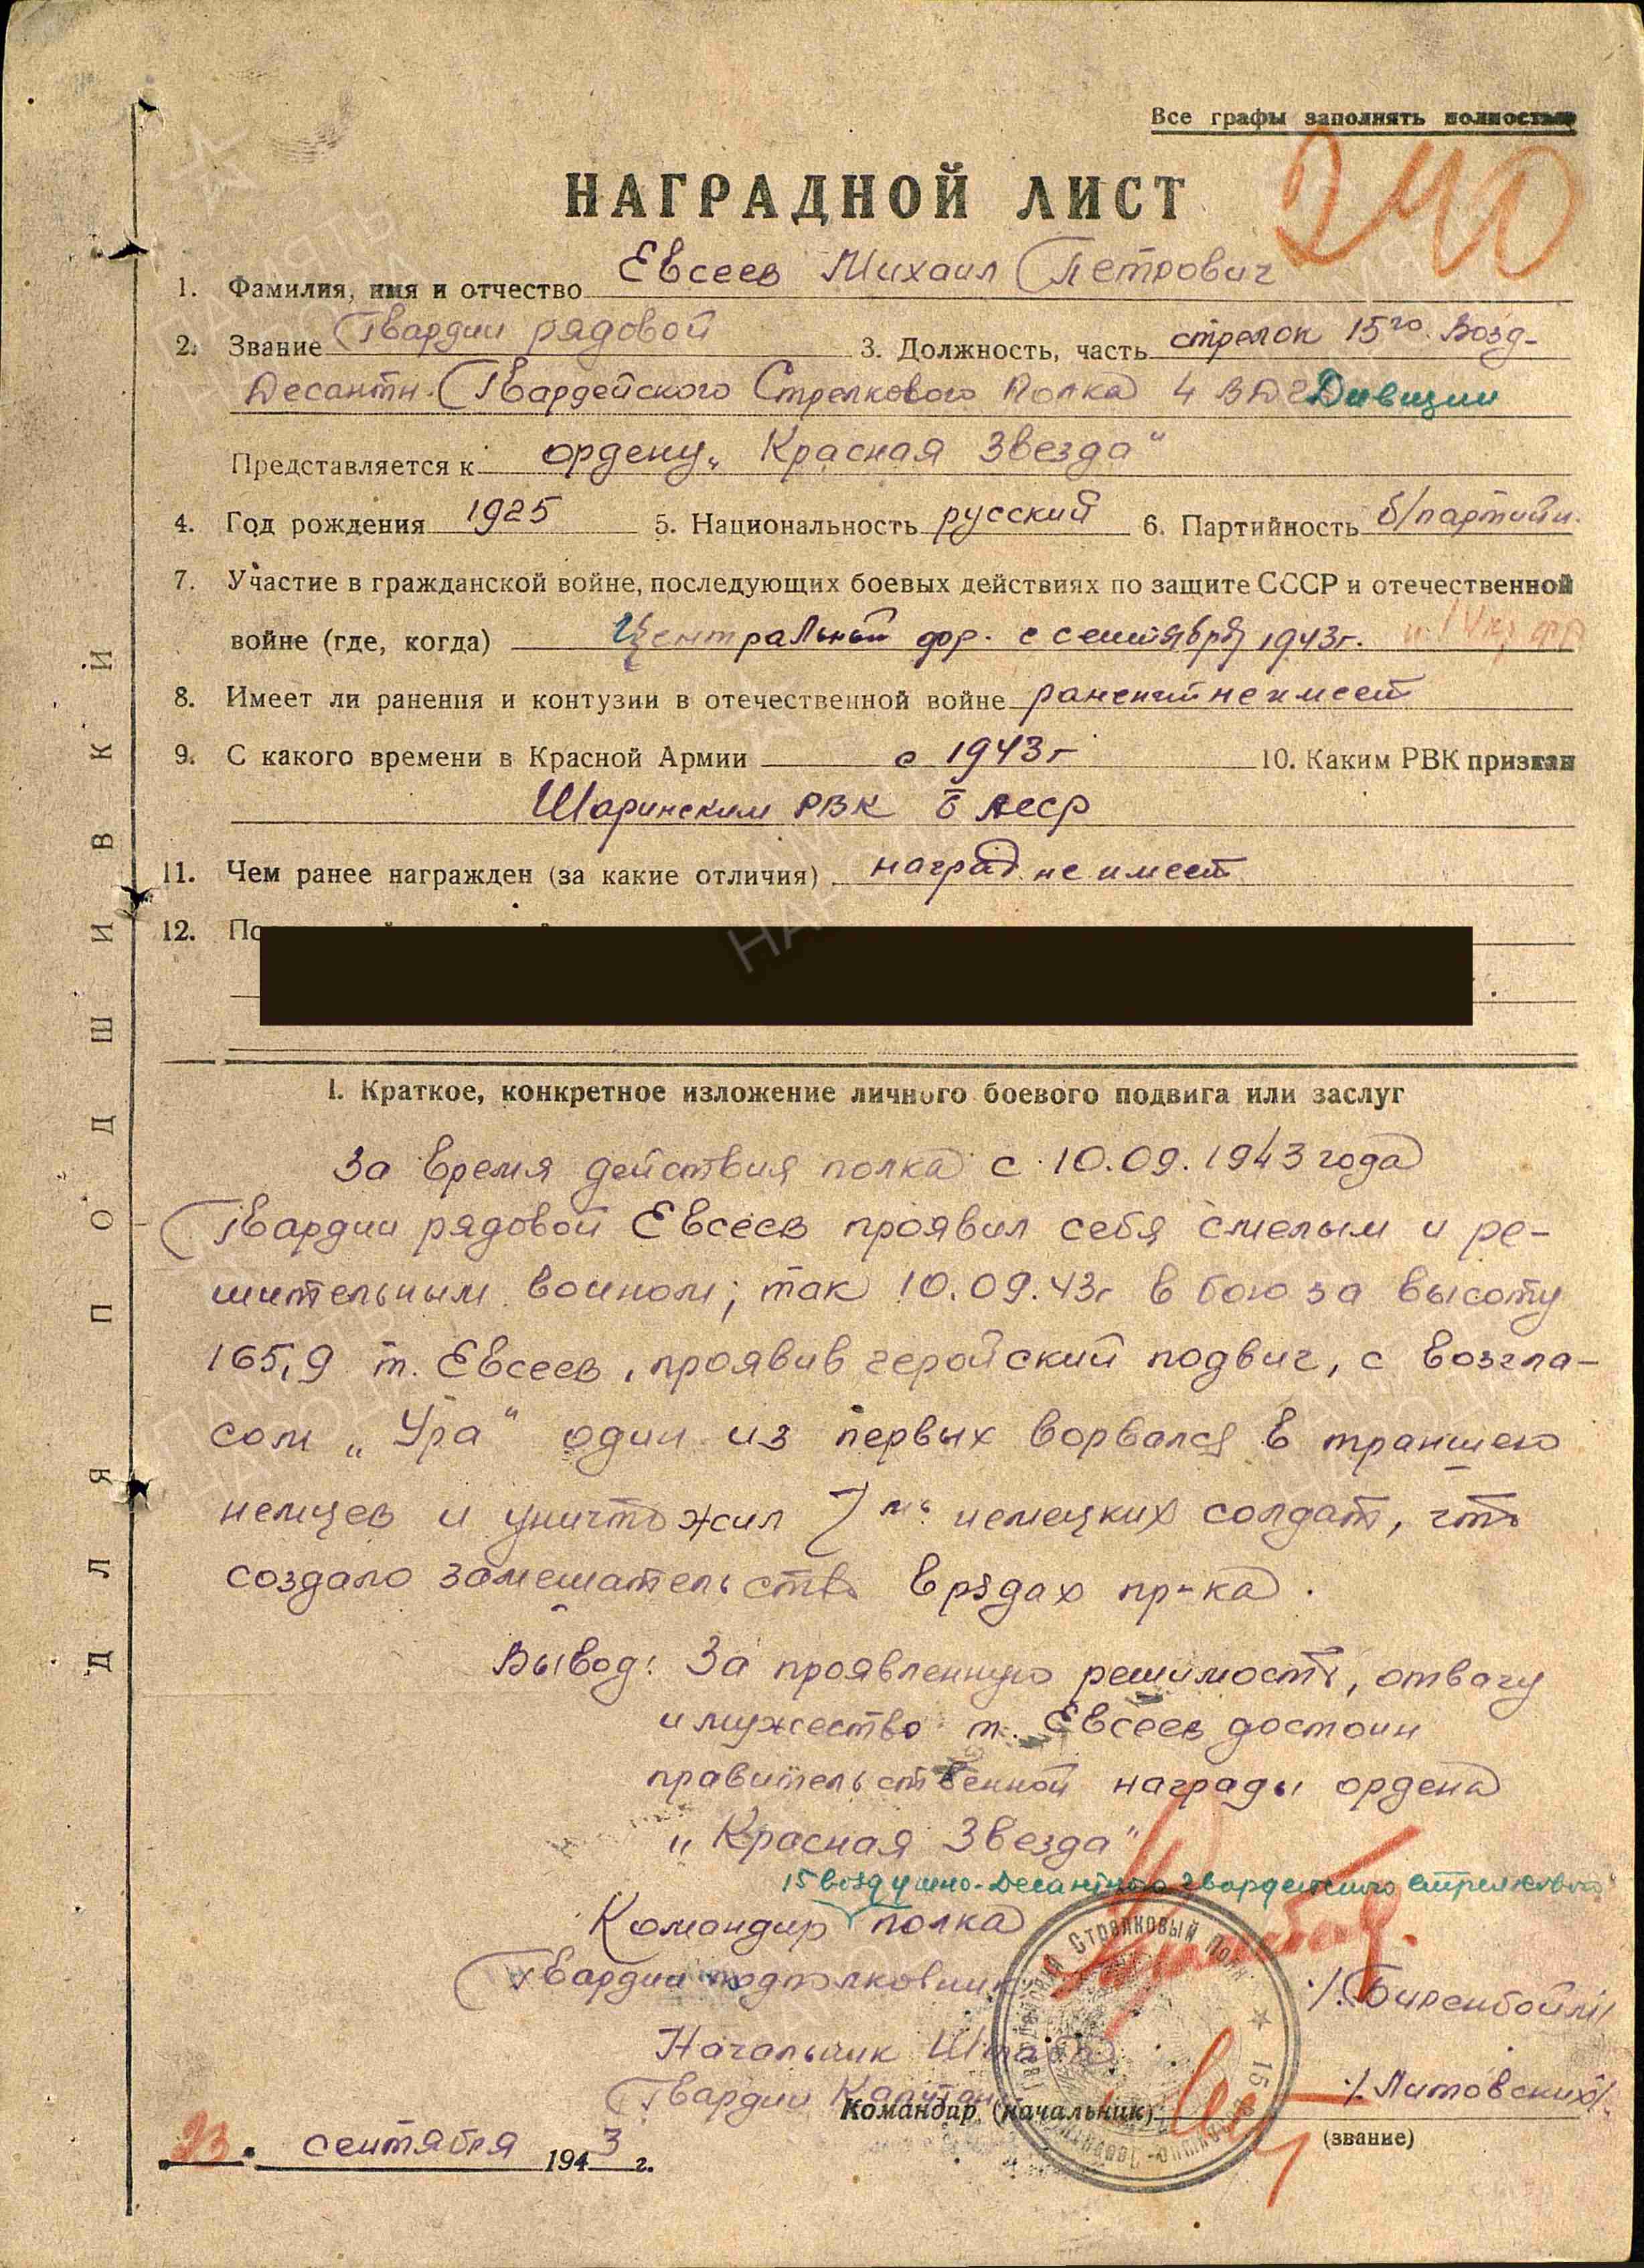 Все графы заполнять полностью
240
НАГРАДНОЙ ЛИСТ
1. Фамилия, имя и отчество Евсеев Михаил Петрович
2. Звание Гвардии рядовой 3. Должность, часть стрелок 15го Возд-
Десантн. Гвардейского Стрелкового Полка 4 ВДГ Дивизии
Представляется к ордену „Красная Звезда“
4. Год рождения 1925 5. Национальность русский 6. Партийность б/партийн.
7. Участие в гражданской войне, последующих боевых действиях по защите СССР и отечественной
войне (где, когда) Центральный фр. с сентября 1943г.
8. Имеет ли ранения и контузии в отечественной войне ранений не имеет
9. С какого времени в Красной Армии с 1943г 10. Каким РВК призван
Шаринским РВК БАССР
11. Чем ранее награжден (за какие отличия) наград не имеет
12.
I. Краткое, конкретное изложение личного боевого подвига или заслуг
За время действия полка с 10.09.1943 года
Гвардии рядовой Евсеев проявил себя смелым и ре-
шительным воином; так 10.09.43г в бою за высоту
165,9 т. Евсеев, проявив геройский подвиг, с возгла-
сом „Ура“ один из первых ворвался в траншею
немцев и уничтожил 7мь немецких солдат, что
создало замешательство в рядах пр-ка.
Вывод: За проявленную решимость, отвагу
и мужество т. Евсеев достоин
правительственной награды ордена
„Красная Звезда“
15 воздушно-Десантного гвардейского стрелкового
Командир полка
Гвардии подполковник /Биренбойм/
Начальник Штаба
Гвардии Капитан /Литовских/.
Командир (начальник)
(звание)
23. сентября 1943 г.
ДЛЯ ПОДШИВКИ
Гвардейский Стрелковый Полк ★ 15
ПАМЯТЬ НАРОДА